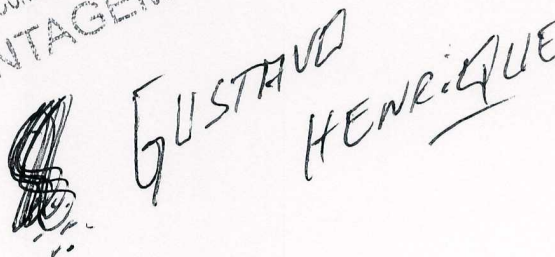 GUSTAVO
HENRIQUE